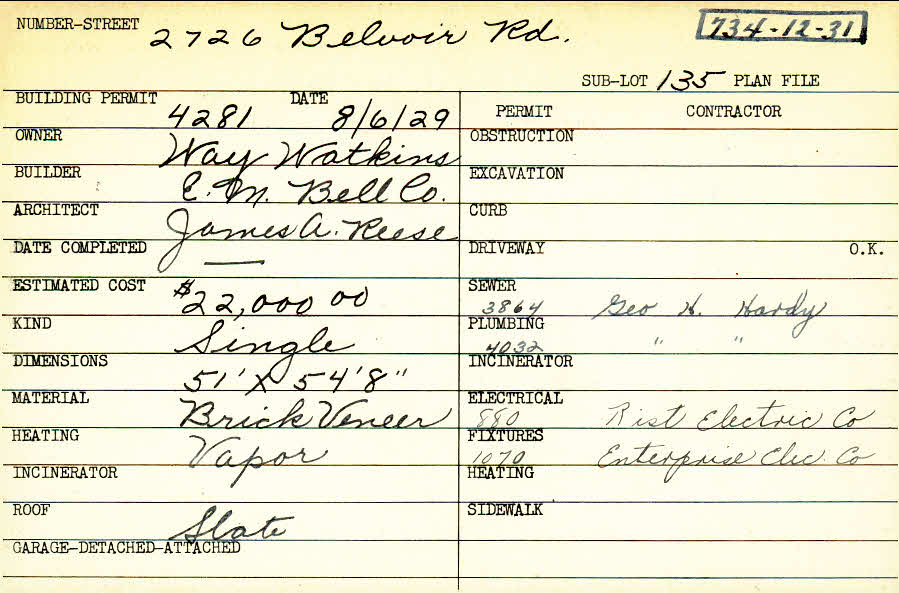 NUMBER-STREET 2726 Belvoir Rd. 734-12-31
SUB-LOT 135 PLAN FILE
BUILDING PERMIT 4281 DATE 8/6/29
OWNER Way Watkins
BUILDER E. M. Bell Co.
ARCHITECT James A. Reese
DATE COMPLETED —
ESTIMATED COST $22,000 00
KIND Single
DIMENSIONS 51' X 54'8"
MATERIAL Brick Veneer
HEATING Vapor
INCINERATOR
ROOF Slate
GARAGE-DETACHED-ATTACHED
PERMIT CONTRACTOR
OBSTRUCTION
EXCAVATION
CURB
DRIVEWAY O.K.
SEWER
3864 Geo H. Hardy
PLUMBING
4032 " "
INCINERATOR
ELECTRICAL
880 Rist Electric Co
FIXTURES
1070 Enterprise Elec. Co
HEATING
SIDEWALK